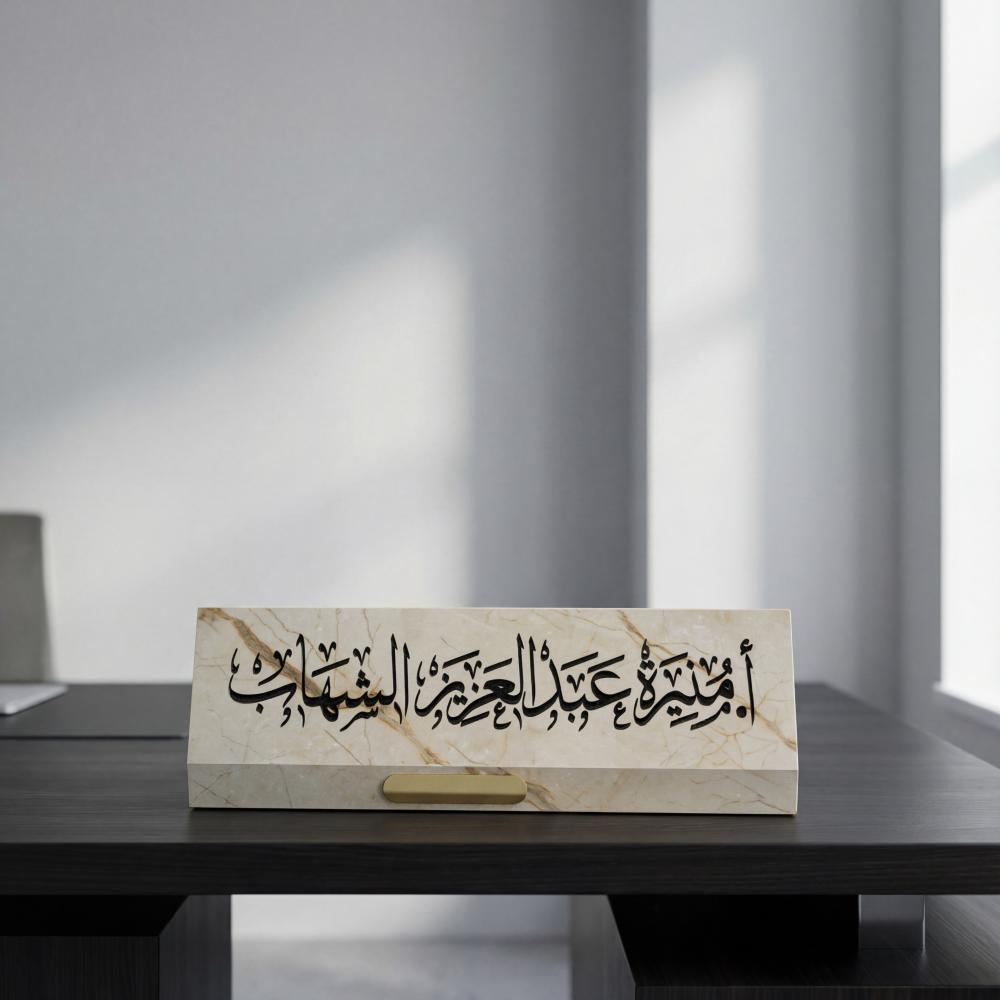 أ. مُنِيرَة عَبَد العَزِيز الشهاب